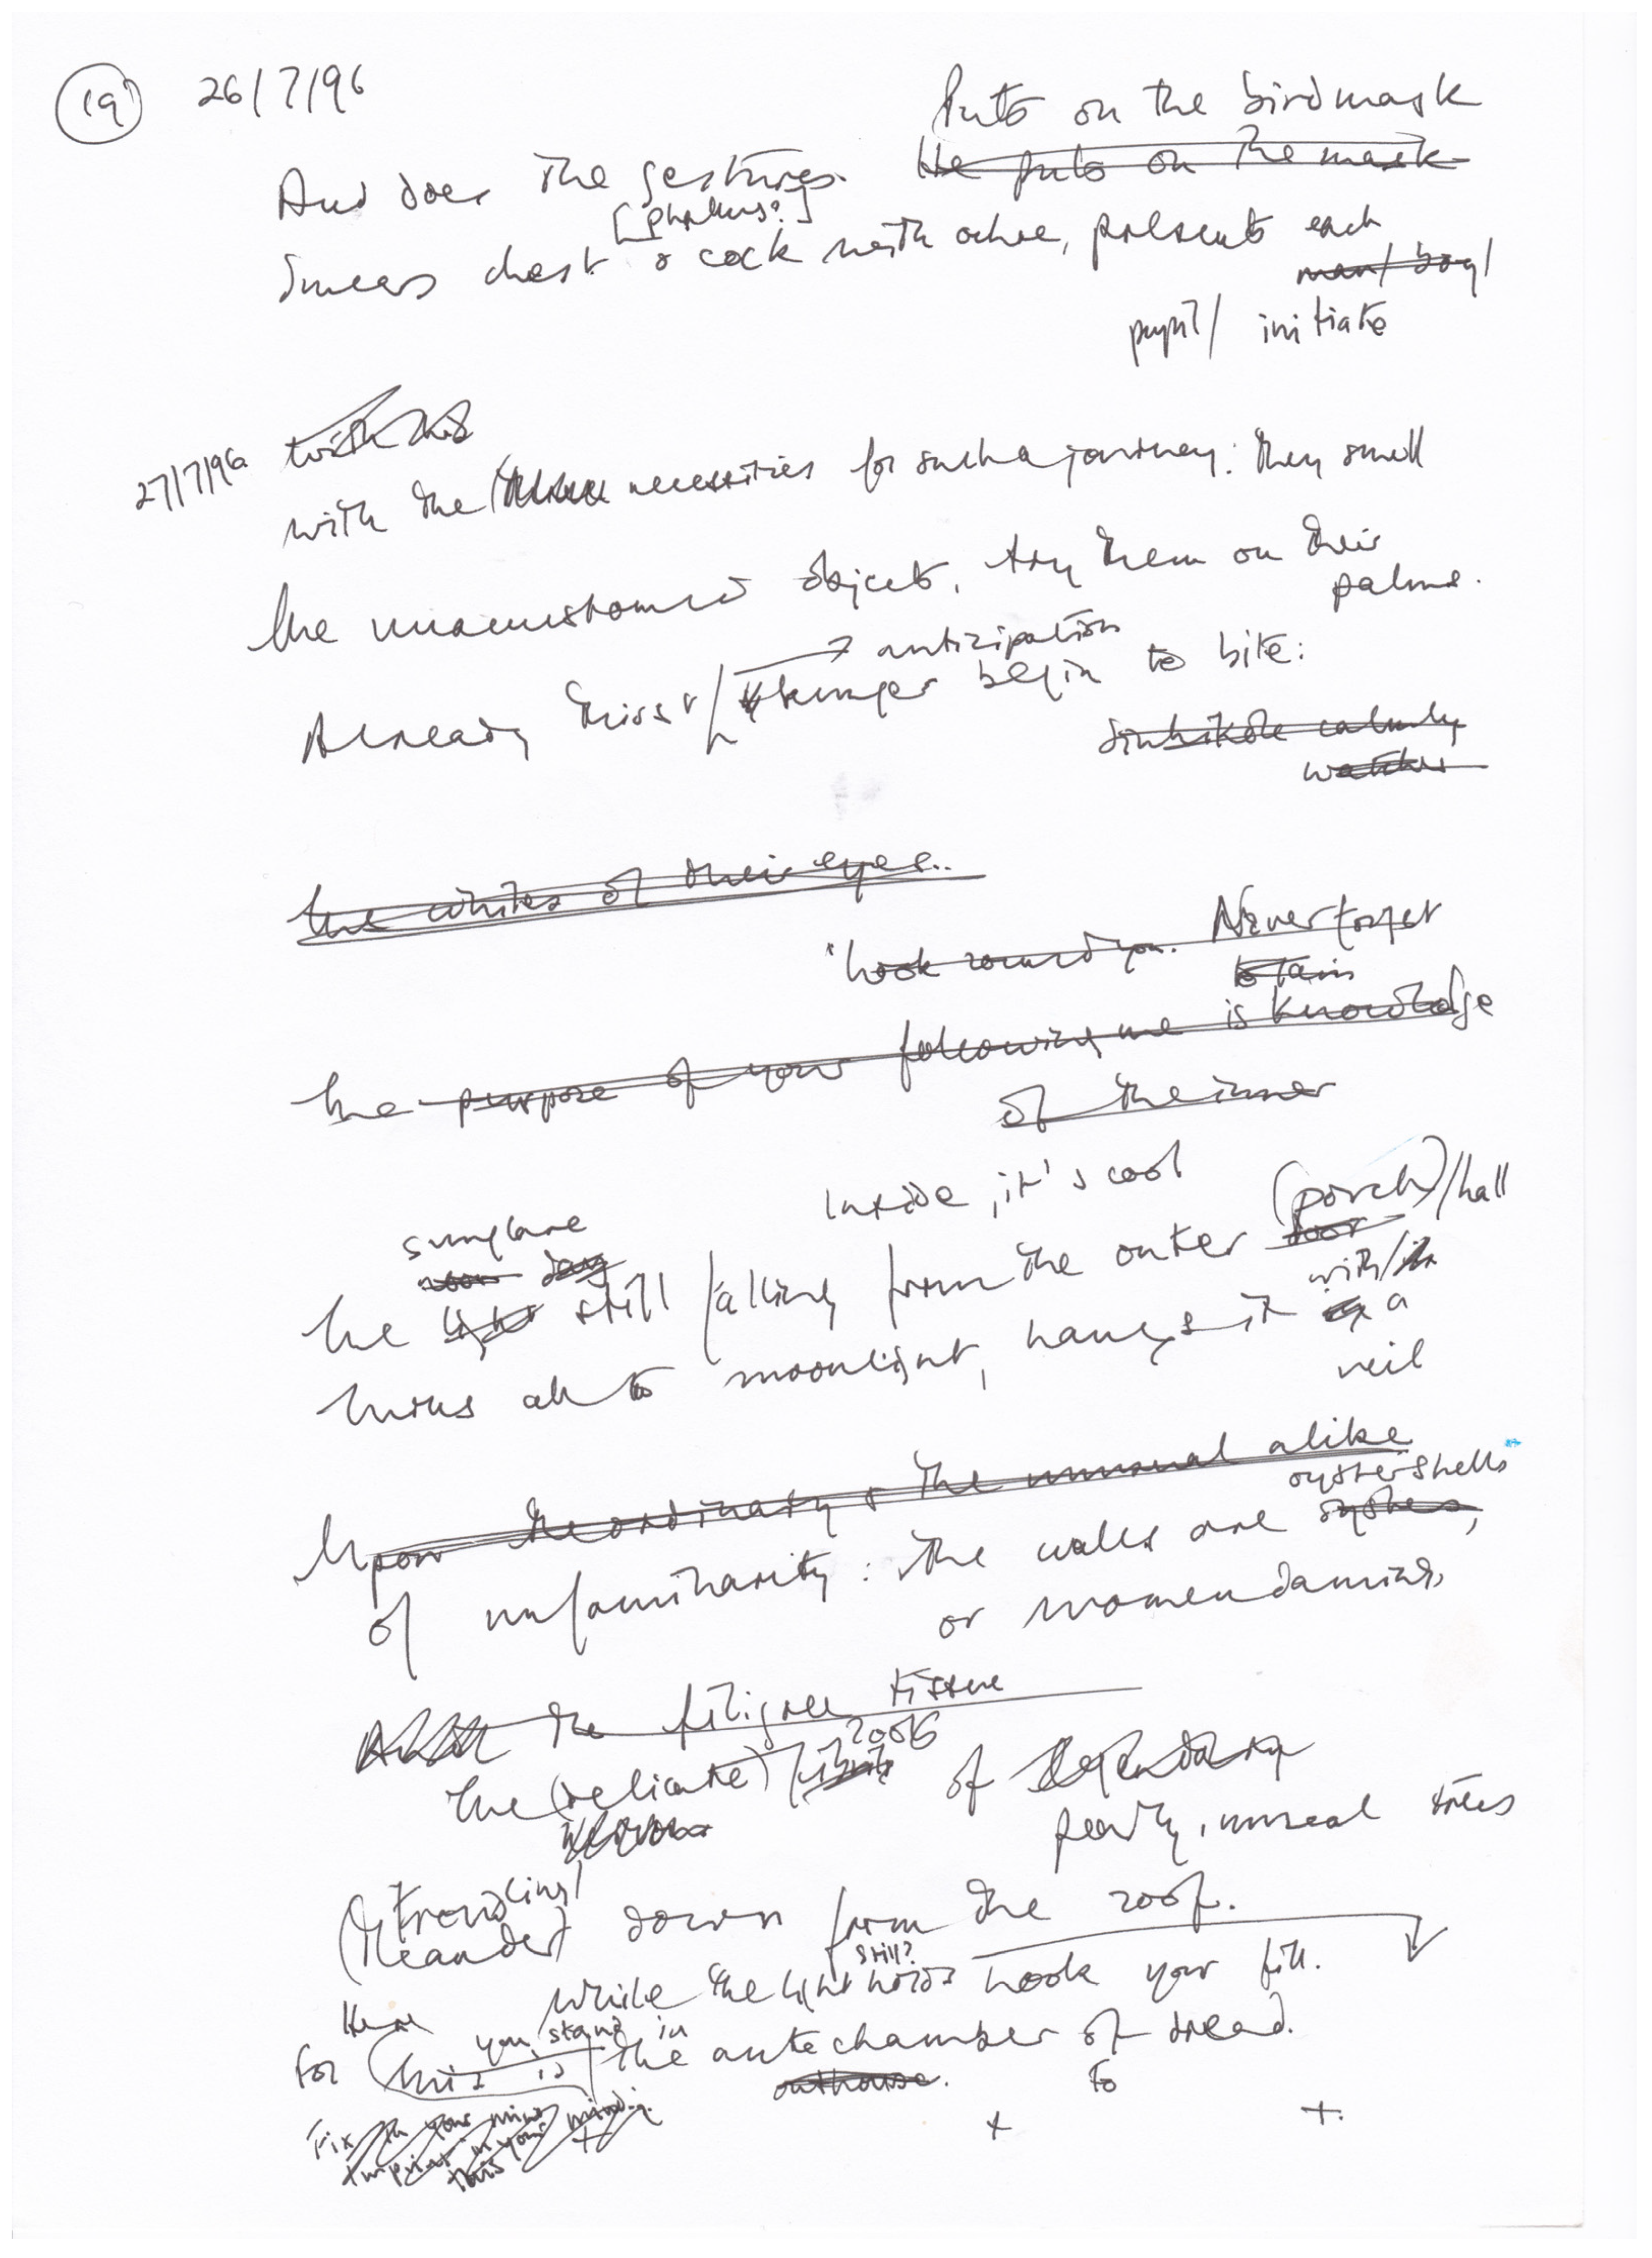 19 26/7/96
Puts on the birdmask
And does the gestures. He puts on the mask
[phallus?]
Smears chest & cock with ochre, presents each
man/boy/
pupil/ initiate
27/7/96 with his
with the necessities for such a journey: they smell
the unaccustomed objects, try them on their
palms.
anticipation
Already thirst / hunger begin to bite:
calmly
watches
the whites of their eyes..
"Look round you. Never forget
the purpose of your following me is knowledge
of the inner
Inside, it's cool
sunglare (porch)/hall
noon day door
the light still falling from the outer with/in
turns all to moonlight, hangs it a
veil
Upon the ordinary & the unusual alike
oystershells
of unfamiliarity: the walls are oysters,
or women dancing,
the filigree tissue
roots
the (delicate) of legendary
pearly, unreal trees
(trend(ing)
(Meander) down from the roof.
still?
while the light holds Look your fill.
Here you stand in
For this is the antechamber of dread.
outhouse. to
Fix in your mind
Imprint in your mind:
this + + +